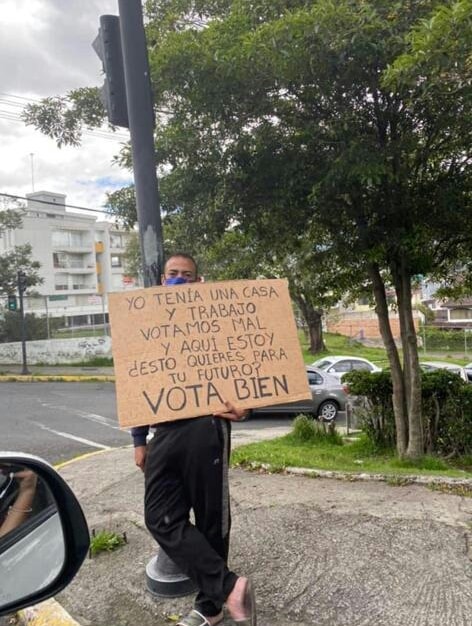 YO TENÍA UNA CASA
Y TRABAJO
VOTAMOS MAL
Y AQUÍ ESTOY
¿ESTO QUIERES PARA
TU FUTURO?
VOTA BIEN